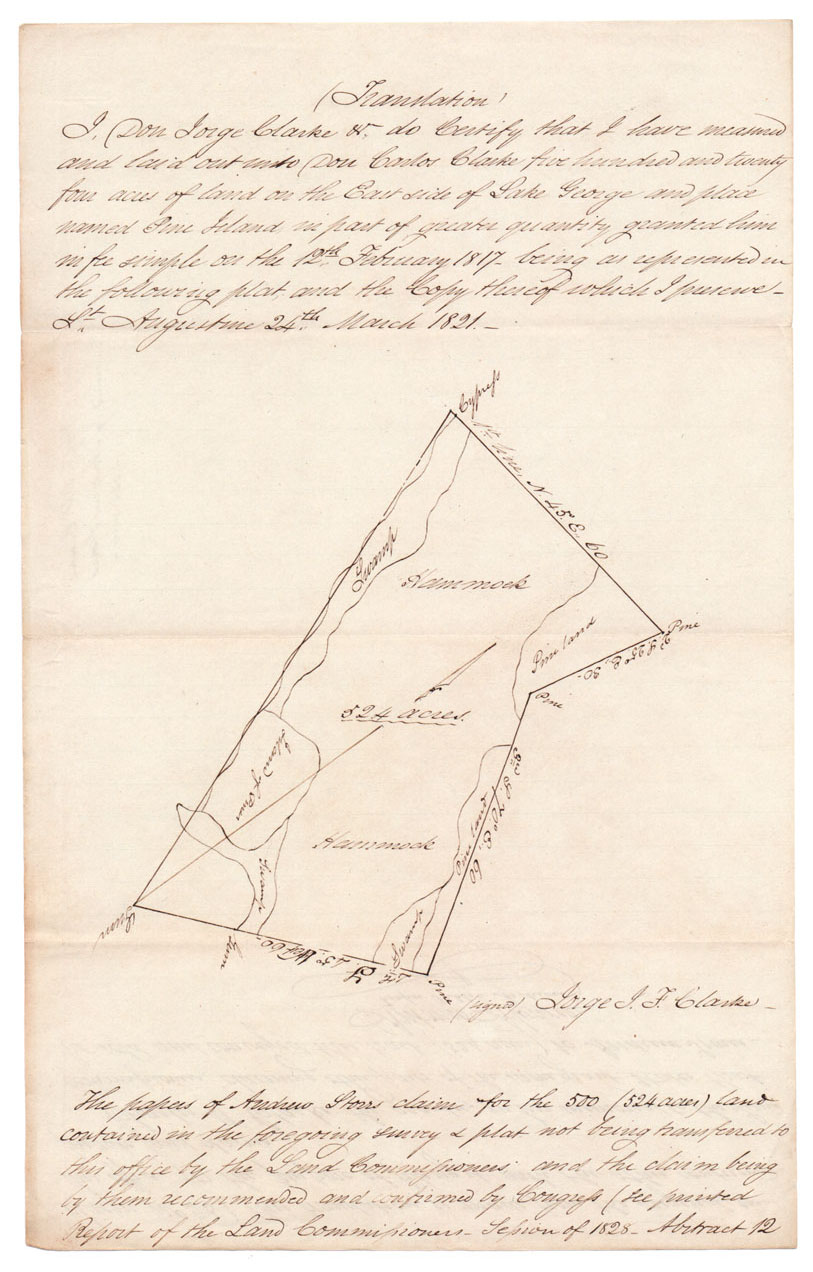 (Translation)
I, Don Jorge Clarke &c. do Certify that I have measured
and laid out unto Don Carlos Clarke five hundred and twenty
four acres of land on the East side of Lake George and place
named Pine Island in part of greater quantity granted him
in fee simple on the 12th February 1817 - being as represented in
the following plat, and the Copy thereof which I preserve -
St. Augustine 24th March 1821. -
Cypress
1st line, N 45° E. 60
Swamp
Hammock
Pine land
Pine
Pine
524 acres.
Island of Pines
Pine land
Hammock
Swamp
Swamp
Pine
(signed) Jorge J. F. Clarke -
The papers of Andrew Storrs claim for the 500 (524 acres) land
contained in the foregoing survey & plat not being transferred to
this office by the Land Commissioners; and the claim being
by them recommended and confirmed by Congress (See printed
Report of the Land Commissioners - Session of 1828 - Abstract 12